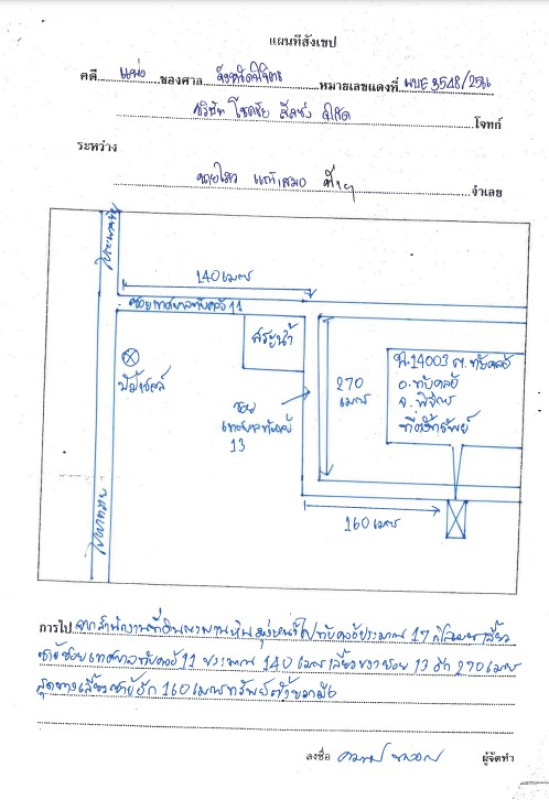 แผนที่สังเขป
คดี แพ่ง ของศาล จังหวัดพิจิตร หมายเลขแดงที่ ผบE 3548/25
บริษัท โชคชัย ลีสซิ่ง จำกัด โจทก์
ระหว่าง
นาย แก้วเสมอ ที่1ๆ จำเลย
140 เมตร
ซอยเทศบาลทับคล้อ 11
สระน้ำ
ปั๊มเชลล์
ซอย
เทศบาลทับคล้อ
13
270
เมตร
น.14003 ต.ทับคล้อ
อ.ทับคล้อ
จ.พิจิตร
ที่ตั้งทรัพย์
160 เมตร
การไป จากสำนักงานที่ดินตะพานหิน มุ่งหน้าไปทับคล้อประมาณ 17 กิโลเมตร เลี้ยว
ซ้ายซอยเทศบาลทับคล้อ 11 ประมาณ 140 เมตร เลี้ยวขวาซอย 13 อีก 270 เมตร
สุดทางเลี้ยวซ้ายอีก 160 เมตร ทรัพย์ตั้งขวามือ
ลงชื่อ ผู้จัดทำ